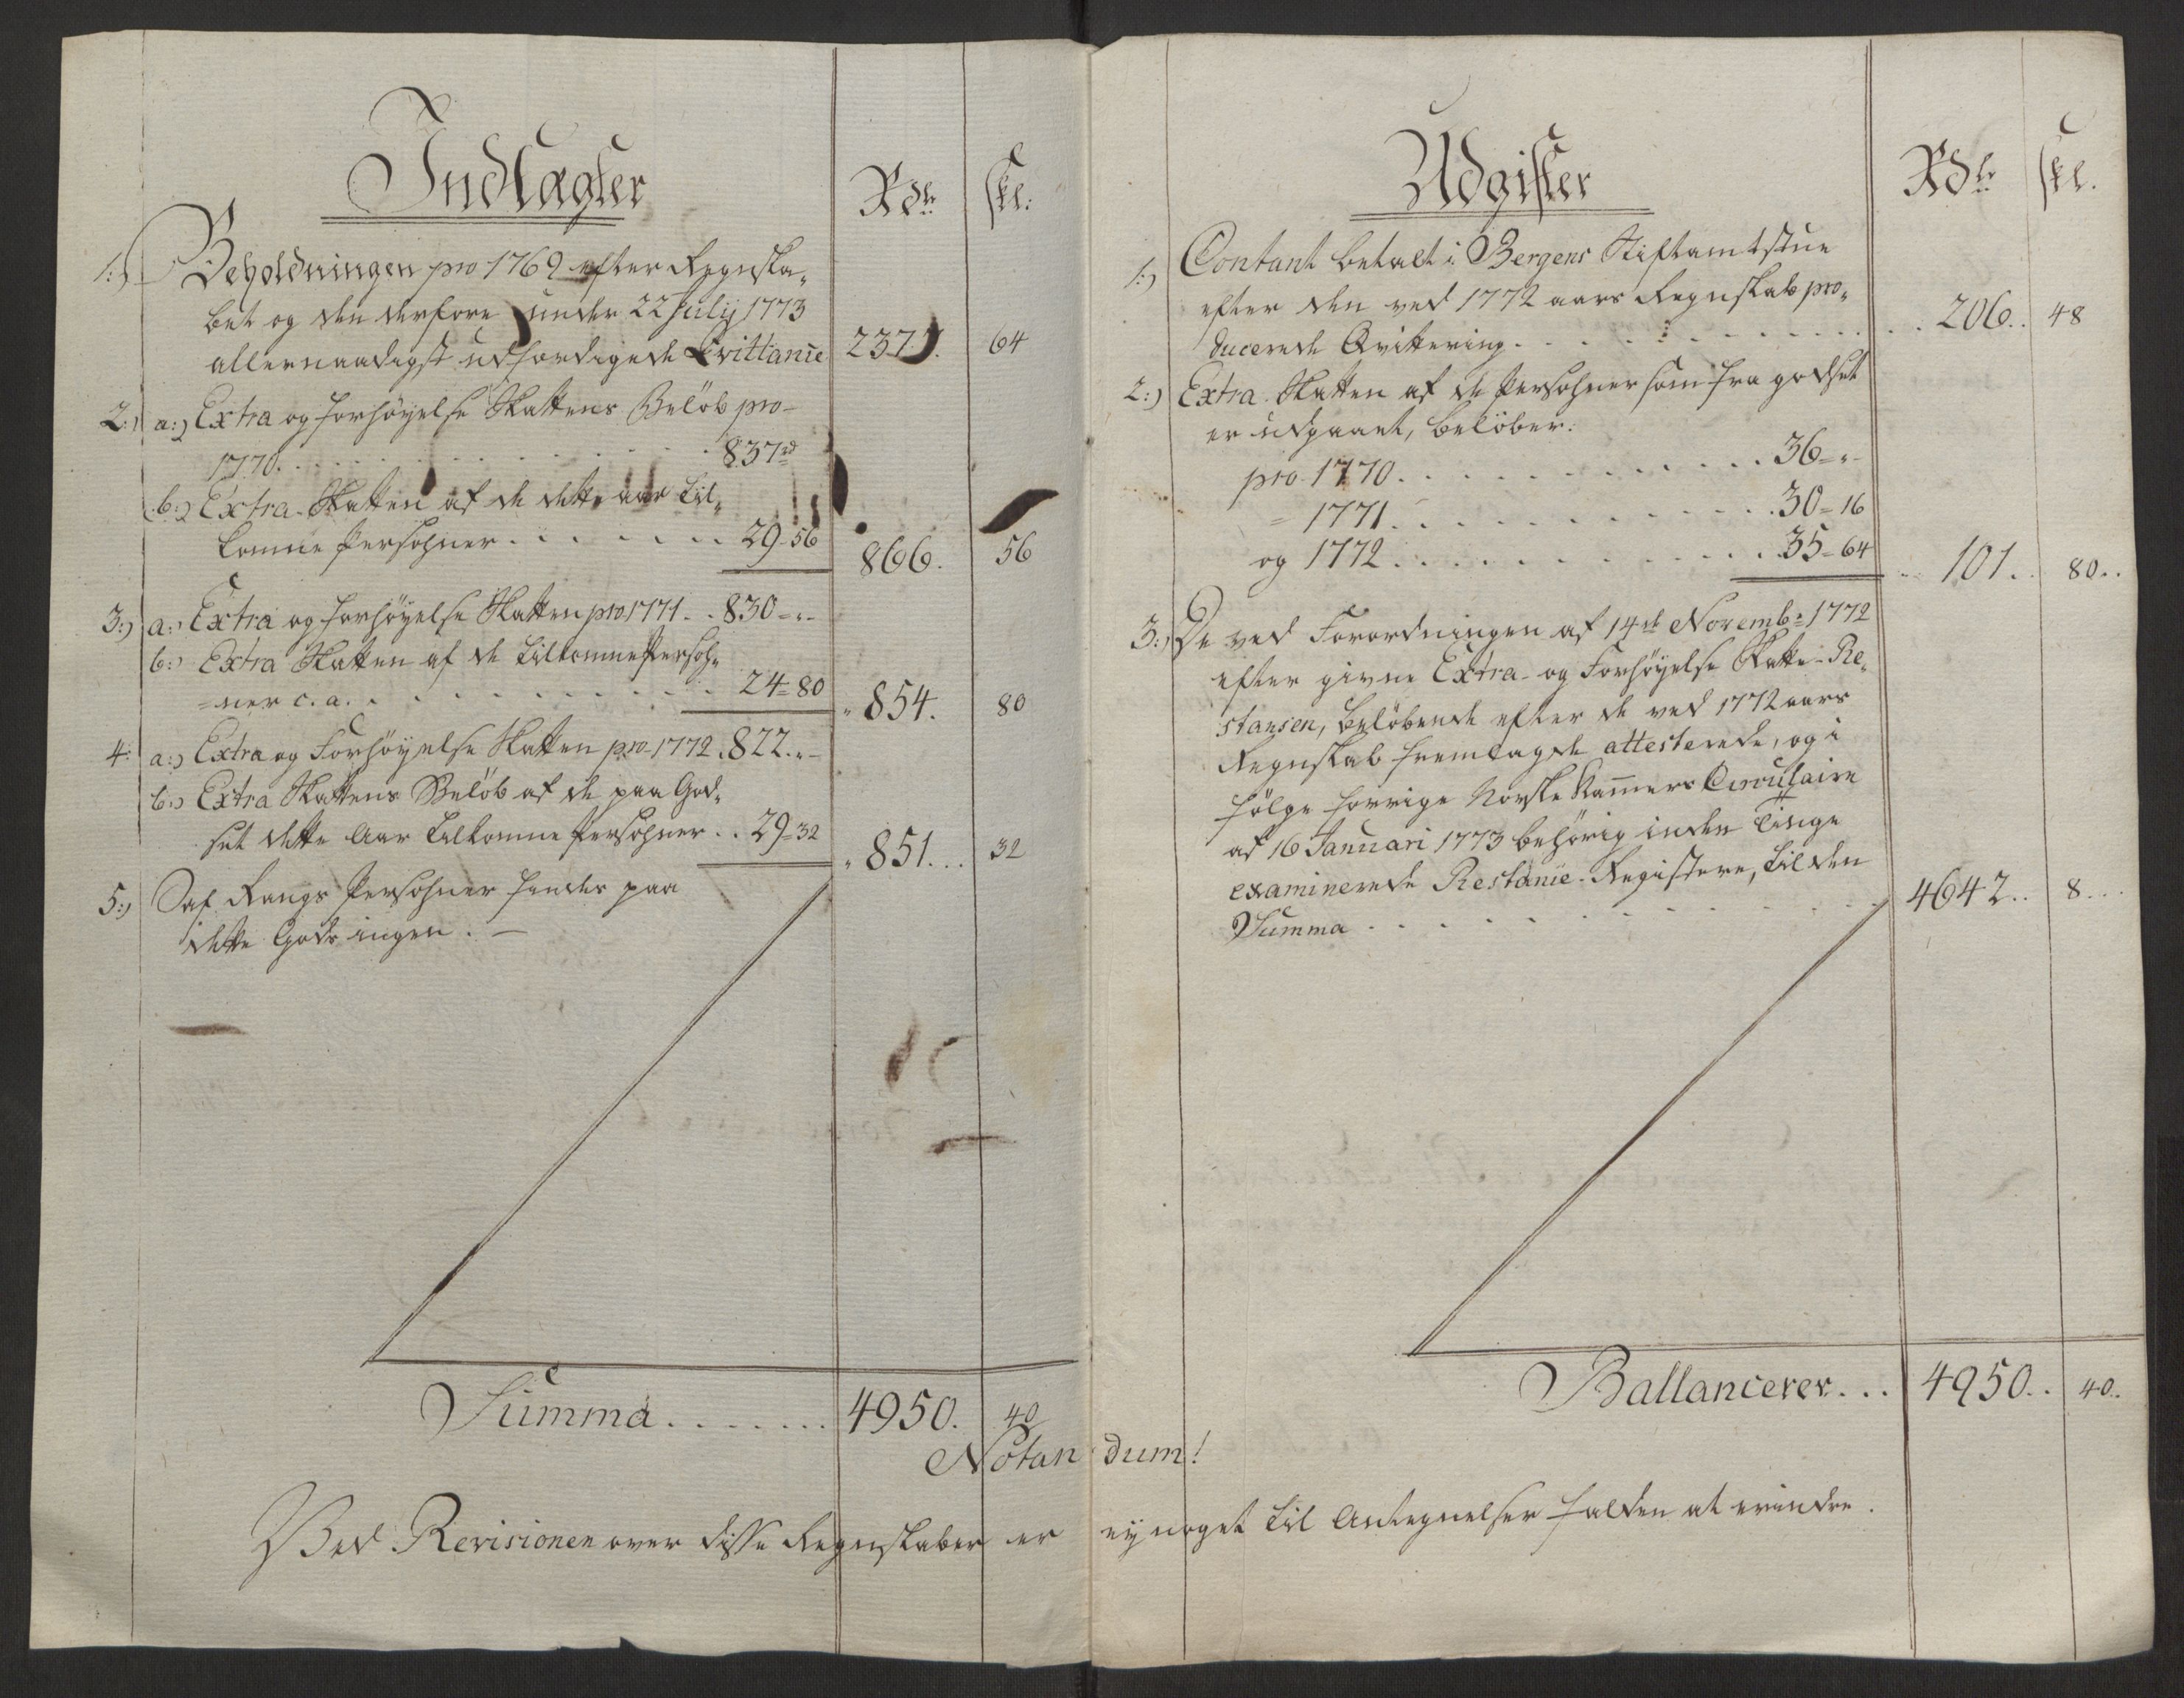 Indtægter
Rdlr. skl:
1:) Beholdningen pro 1769 efter Regnska-
bet og den derfore under 22 Julij 1773
allernaadigst udfærdigede Qvittanze 2377. 64
2:) a:) Extra og Forhøyelse Skattens Beløb pro
1770. . . . . . 837rd
b:) Extra-Skatten af de dette aar til-
komne Persohner . . . . . . 29-56 866. 56
3:) a:) Extra og Forhøyelse Skatten pro 1771 . . 830=„-
b:) Extra Skatten af de tilkomne Persoh-
=ner c. a. . . . . . 24=80 854. 80
4: a:) Extra og Forhøyelse Skatten pro 1772. 822.„-
b:) Extra Skattens Beløb af de paa God-
set dette Aar tilkomne Persohner . . 29=32 851... 32
5:) Af Rangs Persohner findes paa
dette Gods ingen. —
Summa . . . . . . . 4950. 40
Udgifter
Rdlr. skl.
1:) Contant betalt i Bergens Stiftamtstue
efter den ved 1772 aars Regnskab pro-
ducerede Qvittering . . . . . . 206.. 48
2:) Extra-Skatten af de Persohner som fra godset
er udgaaet, beløber:
pro 1770 . . . . . . 36=„-
= 1771 . . . . . . 30=16
og 1772 . . . . . . 35=64 101.. 80..
3:) De ved Forordningen af 14de Novemb: 1772
efter givne Extra- og Forhøyelse Skatte-Re-
stansen, beløbende efter de ved 1772 aars
Regnskab fremlagde attesterede, og i
følge forrige Norske Kammers Circulaire
af 16 Januari 1773 behørig inden Tinge
examinerede Restanze-Registere, til den
Summa . . . . . . 4642.. 8...
Ballancerer... 4950.. 40..
Notandum!
Ved Revisionen over disse Regnskaber er ey noget til Antegnelser falden at erindre.